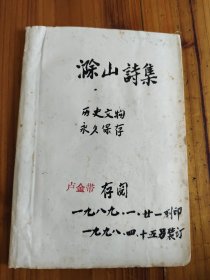 滁山詩集
历史文物
永久保存
卢金带 存阅
一九八九.一.廿一刻印
一九九八.四.十五另装订